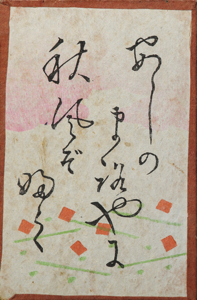 あしの
まろやに
秋風ぞ
ふく